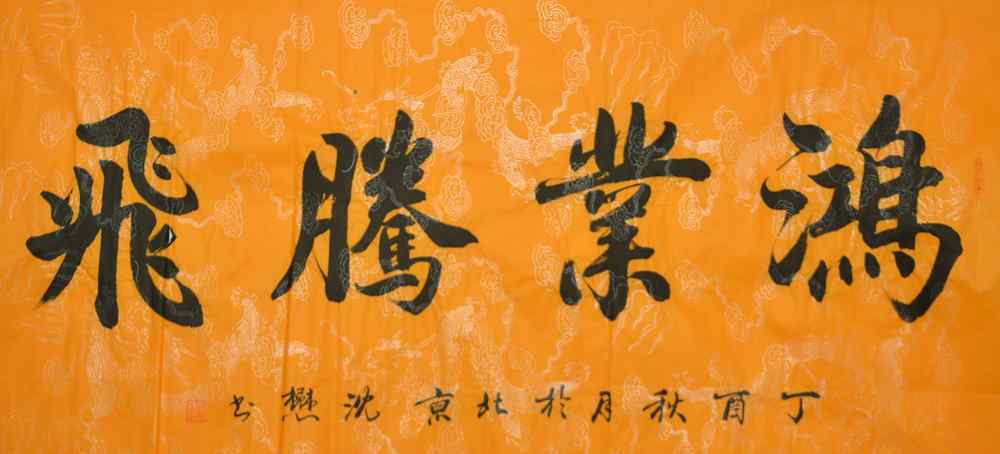 鴻業騰飛
丁酉秋月於北京沈懋书